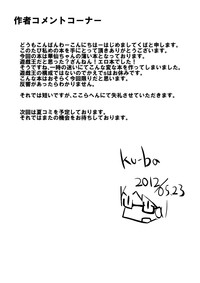 作者コメントコーナー
どうもこんばんわーこんにちはーはじめましてくばと申します。
このたび私めの本を手にとって頂きありがとうございます。
今回の本は華仙ちゃんの薄い本となっております。
遊戯王だと思った?ざんねん!エロ本でした!
そうですね、一時の迷いにてこんな変な本を作ってしまいました。
遊戯王の構成ではないのでかえでsはお休みです。
こんな本はおそらく今回限りだと思います。
反響があったらわかりません。
それでは短いですが、ここらへんにて失礼させていただきます。
次回は夏コミを予定しております。
それではまたの機会をお待ちしております。
Ku-ba
2012
05.23